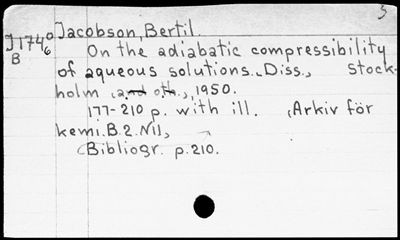 3
Jacobson, Bertil.
J174
B
On the adiabatic compressibility
of aqueous solutions. Diss., Stock-
holm (and oth.), 1950.
177-210 p. with ill. (Arkiv för
kemi. B.2. N:
(Bibliogr. p.210.